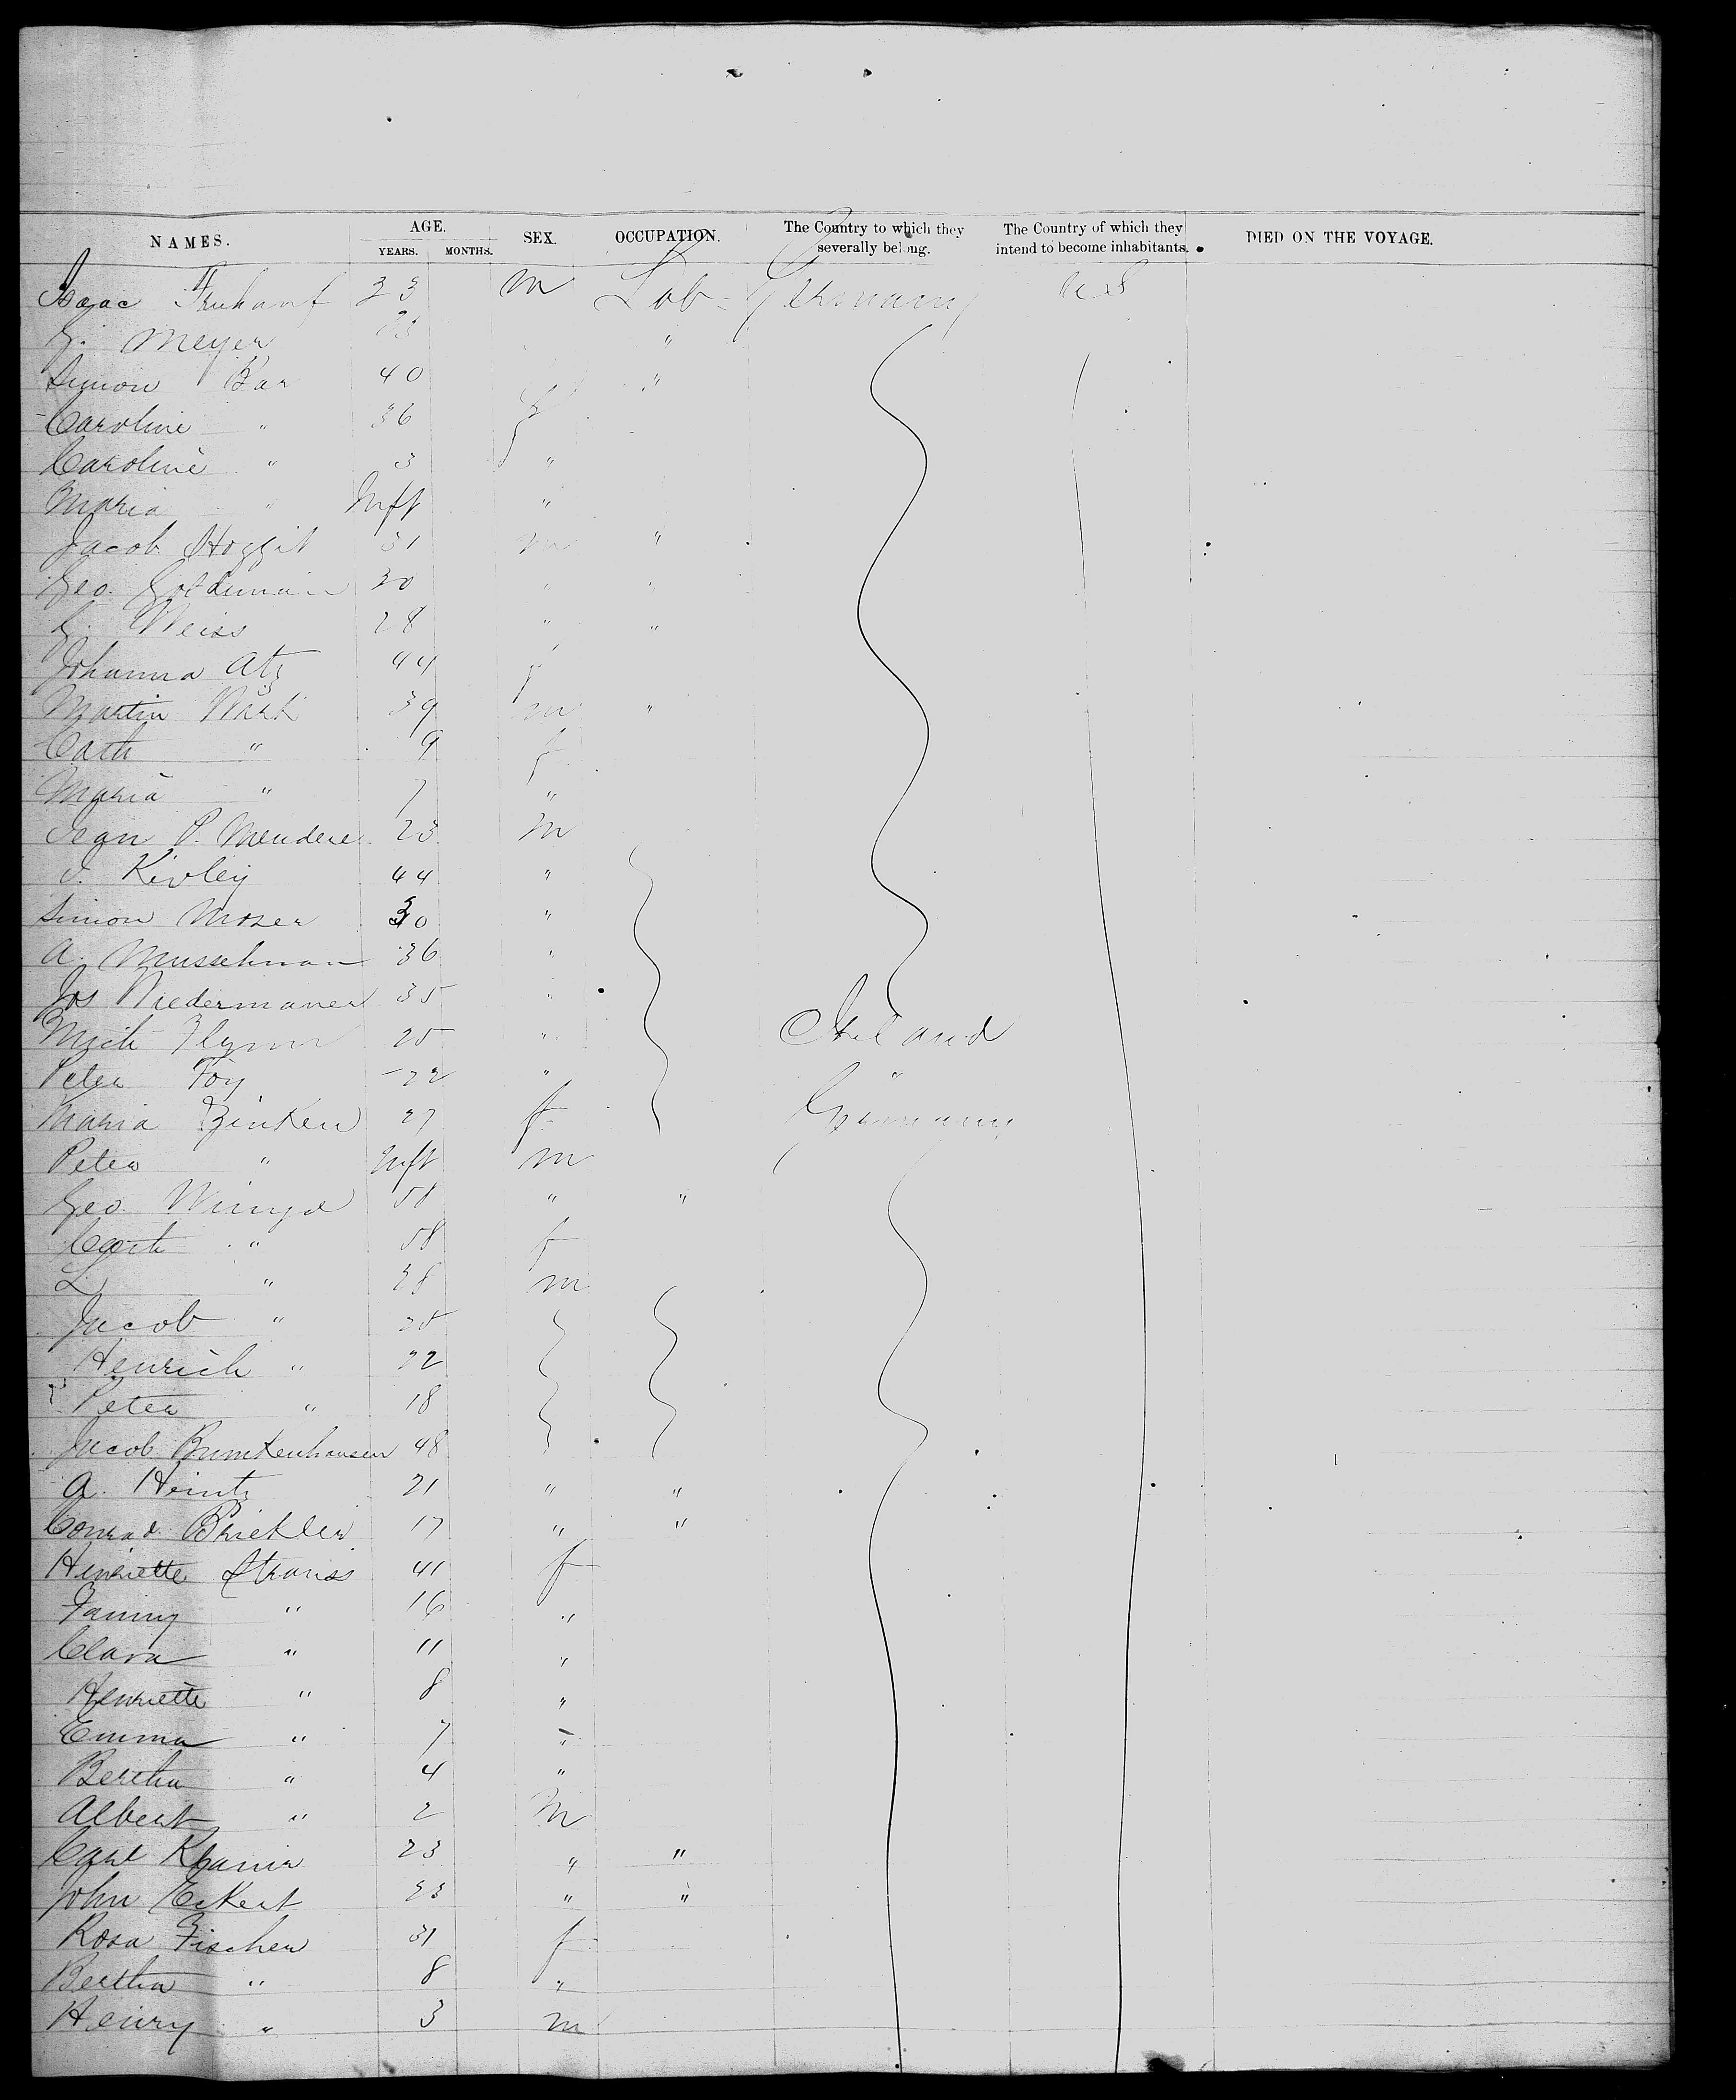 NAMES. AGE. YEARS. MONTHS. SEX. OCCUPATION. The Country to which they severally belong. The Country of which they intend to become inhabitants. DIED ON THE VOYAGE.
Isaac Fruhauf 23 m Lab- Germany U S
G. Meyer "
Simon Bar 40 "
Caroline " 36 f
Caroline " 3 "
Maria " Inft "
Jacob 31 m "
Geo. Goldman 30 " "
G. Weiss 28 " "
Johanna Atz 44 f
Martin 39 m "
Cath " 9 f
Maria " 7 "
Jean P. 23 m
Kivley 44 "
Simon Moser 30 "
A. Musselman 36 "
Jos Niedermaner 35 "
Mich Flynn 25 " Ireland
Peter Foy 22 " "
Maria Zinken 27 f Germany
Peter " Inft m
Geo. 58 " "
Cath " 58 f
L. " 28 m
Jacob " 25
Henrich " 22
Peter " 18
Jacob 48
A. Heintz 21 " "
Conrad 17 " "
Henriette Strauss 41 f
Fanny " 16 "
Clara " 11 "
Henriette " 8 "
Emma " 7 "
Bertha " 4 "
Albert " 2 m
Carl 23 " "
John Eckert 23 " "
Rosa Fischer 31 f
Bertha " 8 "
Henry " 3 m